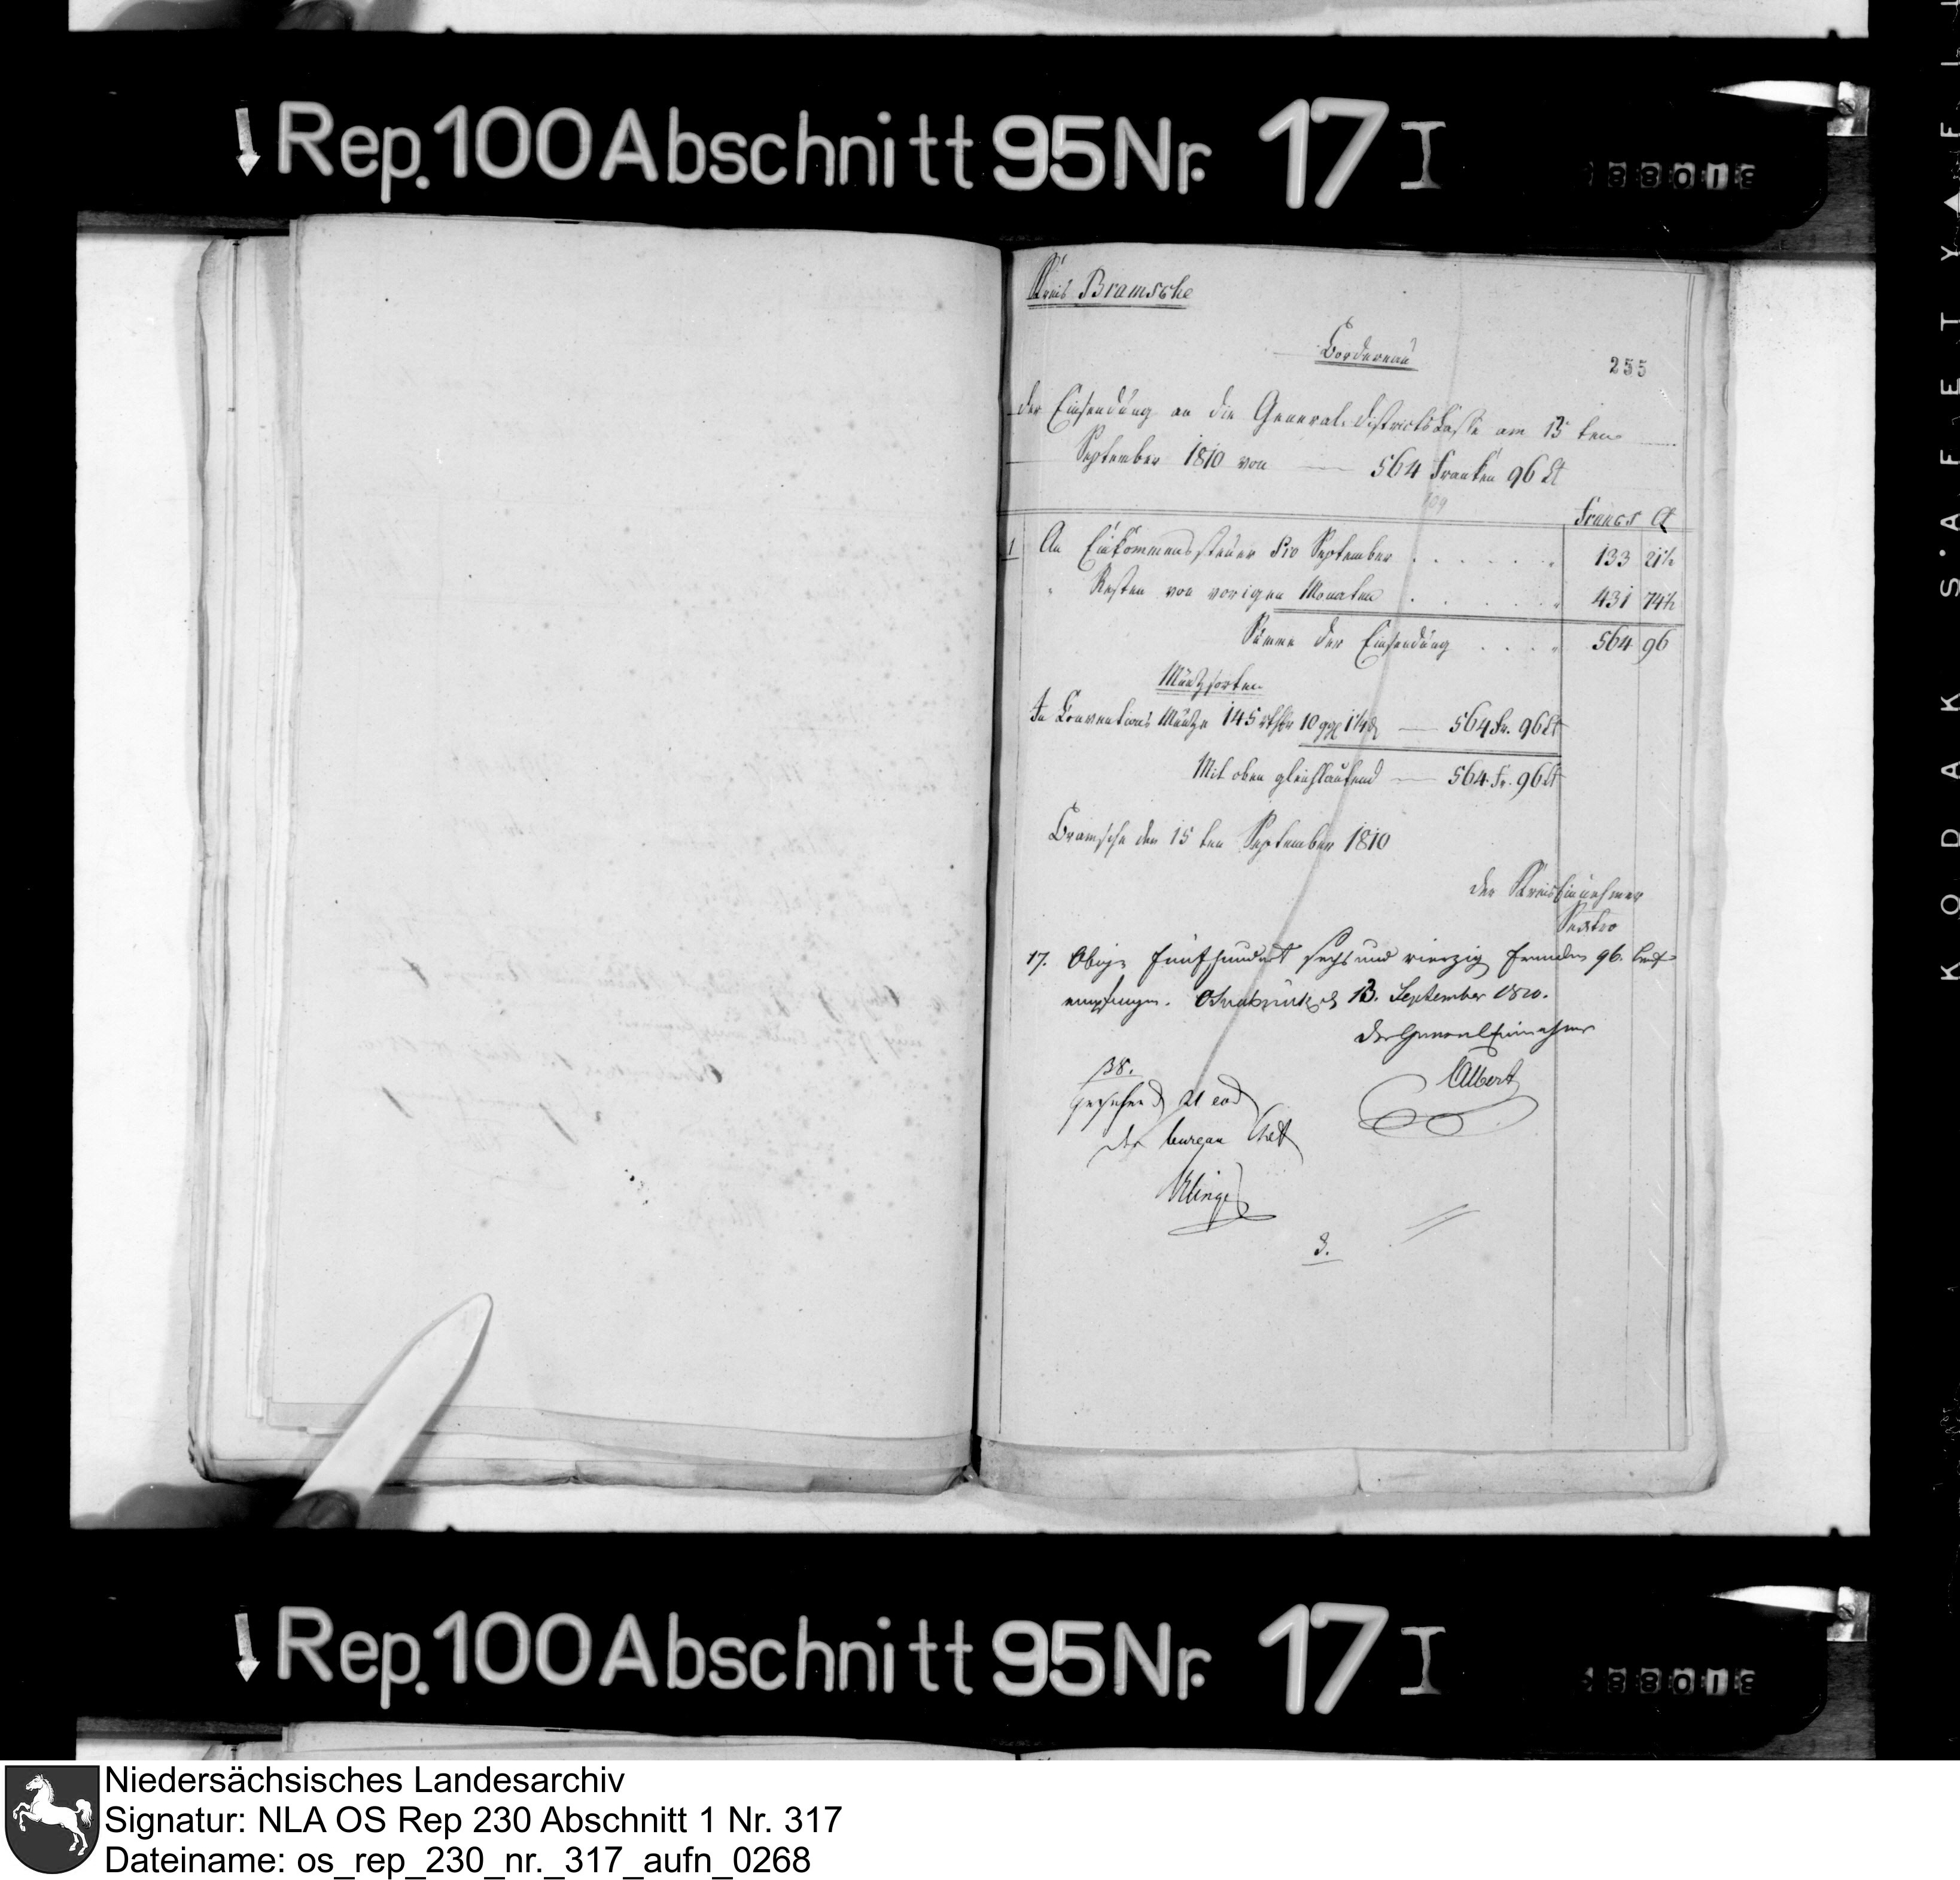 Rep. 100 Abschnitt 95 Nr. 17 I
Kreis Bramsche
Bordereau
255
der Einsendung an die General-DistrictsCasse am 15 ten
September 1810 von — 564 Franken 96 Ct
Francs Ct
1 An Einkommenssteuer pro September . . . . . . 133 21½
" Resten von vorigen Monaten . . . . . 431 74½
Summe der Einsendung . . . . 564 96
Müntzsorten
In Conventions Müntze 145 rthlr 10 ggr 1¼ d — 564 Fr. 96 Ct
Mit oben gleichlautend — 564 Fr. 96 Ct
Bramsche den 15 ten September 1810
der Kreiseinnehmer
Sextro
17. Obige fünfhundert sechs und vierzig Franken 96. Cent
empfangen. Osnabrück d 13. September 1810.
Der General Einnehmer
Albert
38.
gesehen
der bureau Chef
Klinge
3.
Rep. 100 Abschnitt 95 Nr. 17 I
KODAK SAFETY FIL
Niedersächsisches Landesarchiv
Signatur: NLA OS Rep 230 Abschnitt 1 Nr. 317
Dateiname: os_rep_230_nr._317_aufn_0268